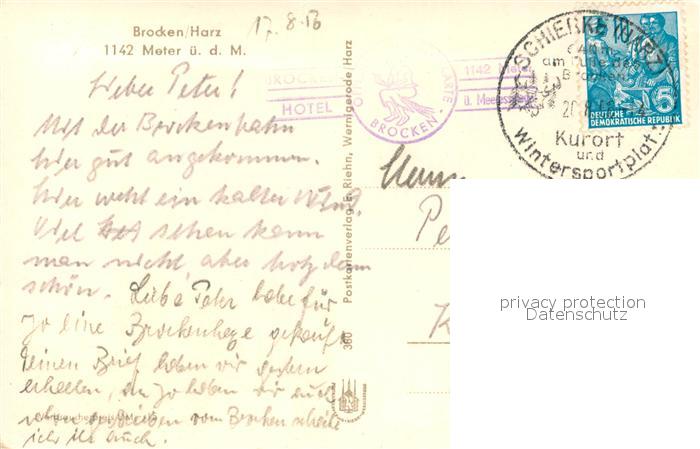 Brocken/Harz
1142 Meter ü. d. M.
17.8.56
Lieber Peter!
Mit der Brockenbahn
hier gut angekommen.
Hier weht ein kalter Wind.
Viel sehen kann
man nicht, aber trotzdem
schön. Liebe Peter habe für
Jo eine Brockenhexe gekauft
Deinen Brief haben wir gestern
erhalten, an Jo haben wir auch
schon geschrieben vom Brocken schreibe
ich ihr auch.
Postkartenverlag E. Riehn, Wernigerode/Harz
380
BROCKEN
HOTEL
BROCKEN
1142 Meter
ü. Meeresspiegel
SCHIERKE (HARZ)
am Fuße des
Brocken
Kurort
und
Wintersportplatz
DEUTSCHE
DEMOKRATISCHE REPUBLIK
5
Herrn
Pe
K
privacy protection
Datenschutz